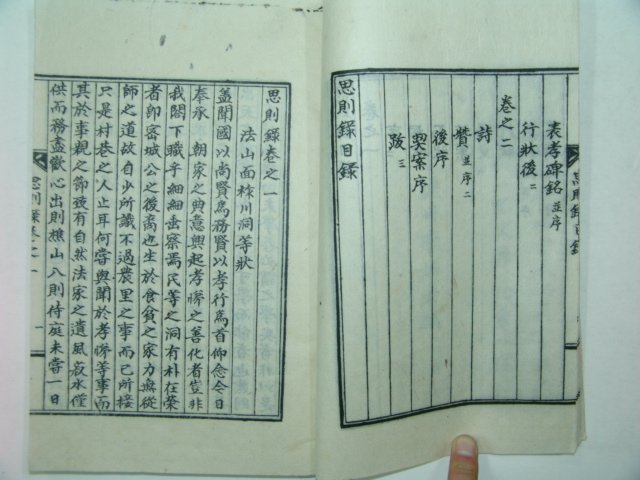 表孝碑銘 並序
行狀後 二
卷之二
詩
贊 並序二
後序
契案序
跋 三
思則錄目錄
思則錄目錄
思則錄卷之一
法山面檢川洞等狀
蓋聞國以尚賢爲務賢以孝行爲首仰念今日
奉承 朝家之典意興起孝悌之善化者豈非
我閤下職乎細細垂察焉民等之洞有朴在榮
者卽密城公之後裔也生於食貧之家力無從
師之道故自少所識不過農里之事而已所接
只是村巷之人止耳何嘗與聞於孝悌等事而
其於事親之節發有自然法家之遺風菽水僅
供而務盡歡心出則樵山入則侍庭未嘗一日
思則錄卷之一
一